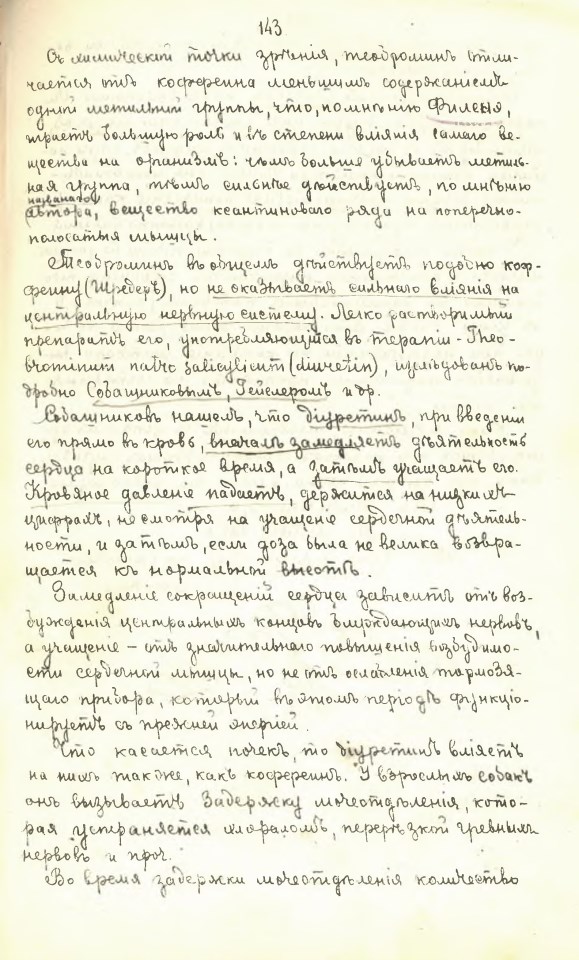 143
Съ химической точки зрѣнія, теоброминъ отли-
чается отъ коффеина меньшимъ содержаніемъ
одной метильной группы, что, по мнѣнію Филеня,
играетъ большую роль и въ степени вліянія самаго ве-
щества на организмъ: чѣмъ больше убываетъ метиль-
ная группа, тѣмъ сильнѣе дѣйствуетъ, по мнѣнію
названнаго
автора, вещество ксантиноваго ряда на поперечно-
полосатыя мышцы.
Теоброминъ въ общемъ дѣйствуетъ подобно коф-
феину (Шредеръ), но не оказываетъ сильнаго вліянія на
центральную нервную систему. Легко растворимый
препаратъ его, употребляющійся въ терапіи - Theo-
brominum natrio salicylicum (diuretin), изслѣдованъ по-
дробно Собашниковымъ, Гейслеромъ и др.
Собашниковъ нашелъ, что діуретинъ, при введеніи
его прямо въ кровь, вначалѣ замедляетъ дѣятельность
сердца на короткое время, а затѣмъ учащаетъ его.
Кровяное давленіе падаетъ, держится на низкихъ
цифрахъ, несмотря на учащеніе сердечной дѣятель-
ности, и затѣмъ, если доза была не велика возвра-
щается къ нормальной высотѣ.
Замедленіе сокращеній сердца зависитъ отъ воз-
бужденія центральныхъ концовъ блуждающихъ нервовъ,
а учащеніе - отъ значительнаго повышенія возбудимо-
сти сердечной мышцы, но не отъ ослабленія тормозя-
щаго прибора, который въ этомъ періодѣ функціо-
нируетъ съ прежней энергіей.
Что касается почекъ, то діуретинъ вліяетъ
на нихъ также, какъ коффеинъ. У взрослыхъ собакъ
онъ вызываетъ задержку мочеотдѣленія, кото-
рая устраняется хлораломъ, перерѣзкой чревныхъ
нервовъ и проч.
Во время задержки мочеотдѣленія количество